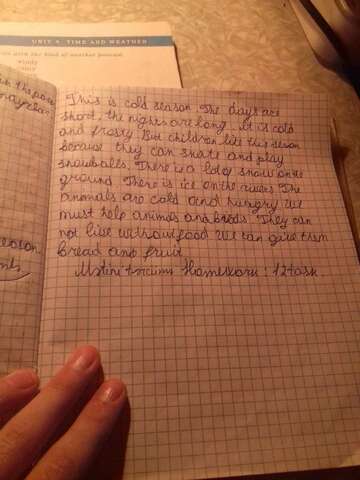 UNIT 4 TIME AND WEATHER
with the kind of weather
windy
This is cold season. The days are
short, the nights are long. It is cold
and frosty. But children like this season
because they can skate and play
snowballs. There is a lot of snow on the
ground. There is ice on the rivers. The
animals are cold and hungry. We
must help animals and birds. They can
not live without food. We can give them
bread and fruit.
Homework: 12task.